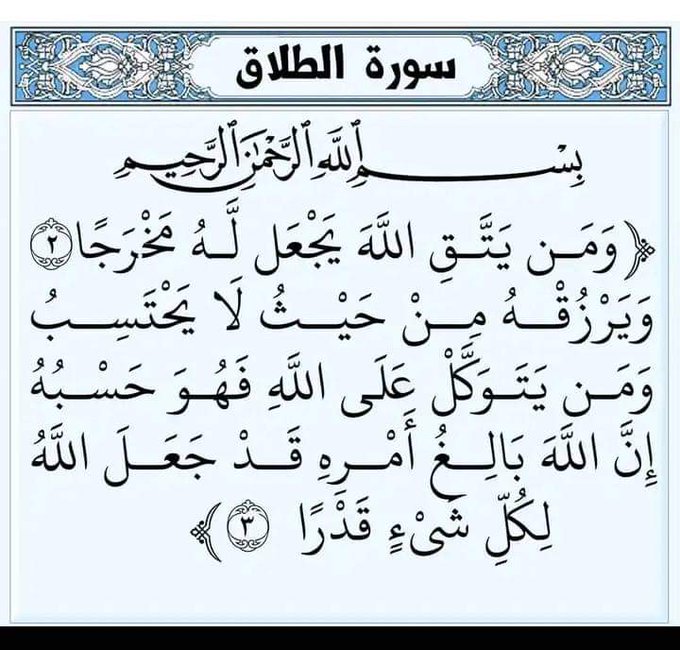 سورة الطلاق
بِسْمِ اللَّهِ الرَّحْمَٰنِ الرَّحِيمِ
﴿ وَمَن يَتَّقِ اللَّهَ يَجْعَل لَّهُ مَخْرَجًا ٢
وَيَرْزُقْهُ مِنْ حَيْثُ لَا يَحْتَسِبُ
وَمَن يَتَوَكَّلْ عَلَى اللَّهِ فَهُوَ حَسْبُهُ
إِنَّ اللَّهَ بَالِغُ أَمْرِهِ قَدْ جَعَلَ اللَّهُ
لِكُلِّ شَيْءٍ قَدْرًا ٣ ﴾